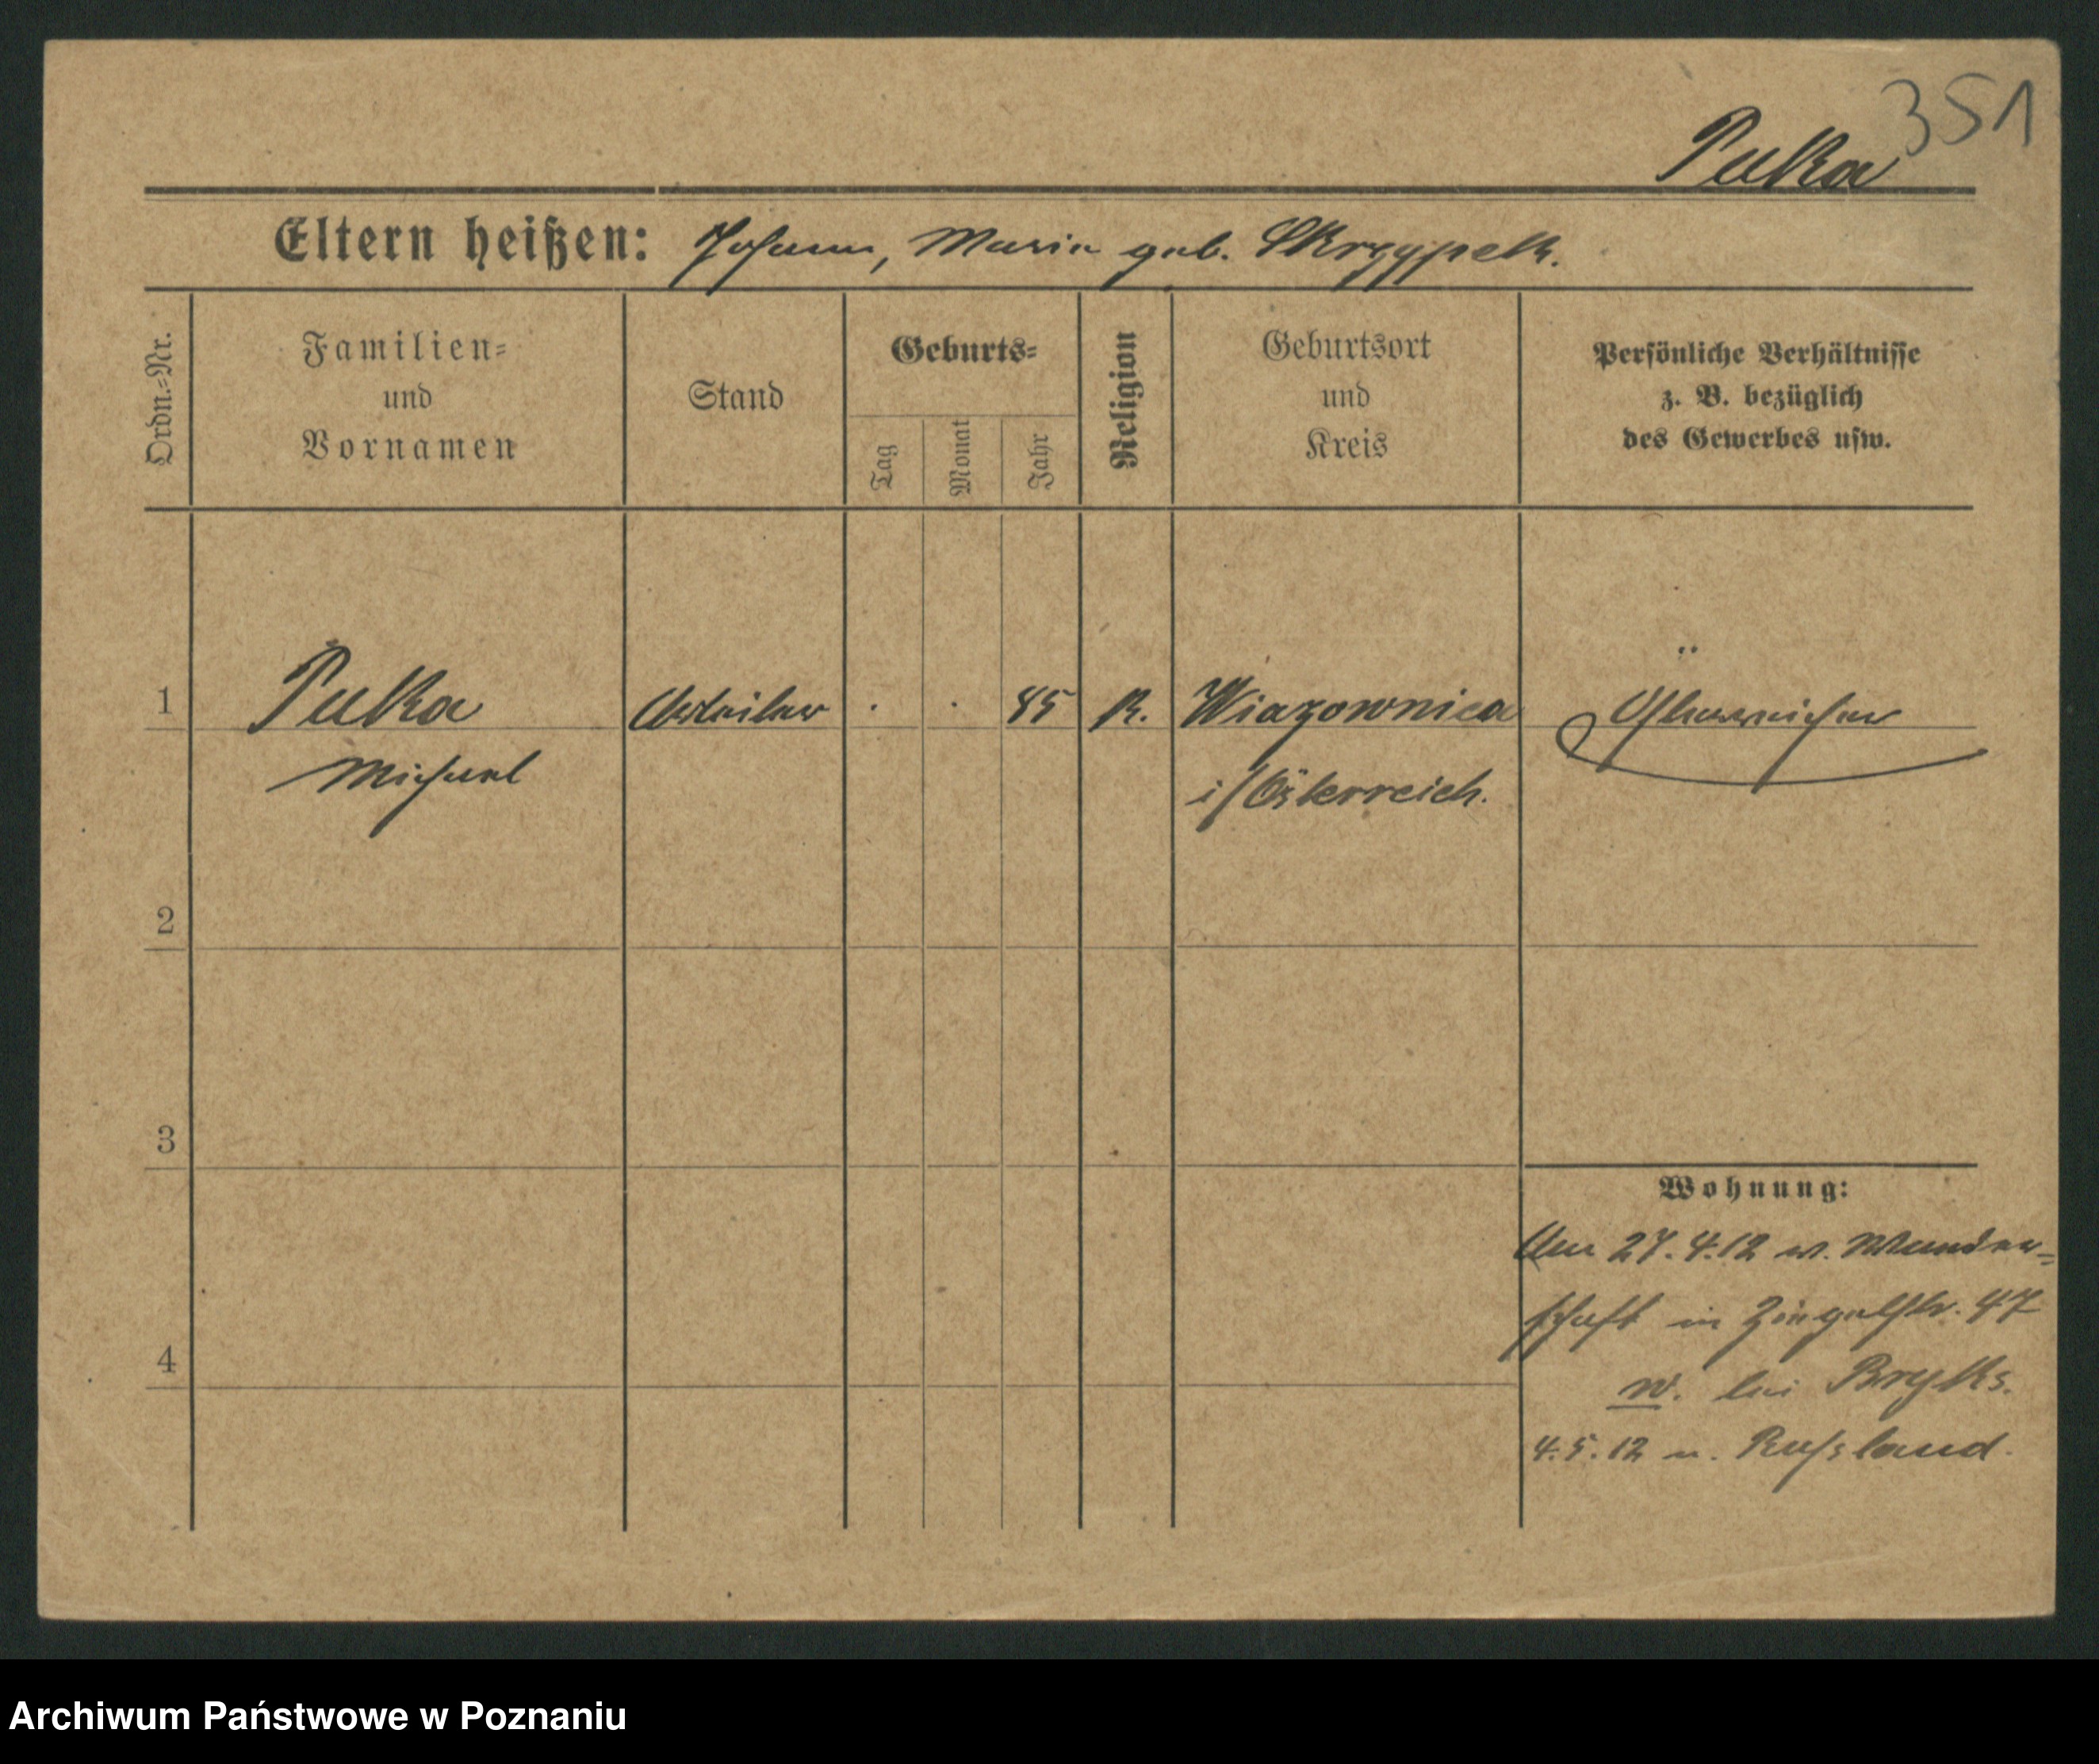 351
Pulka
Eltern heißen: Johann, Maria geb. Skrzypek.
Ordn.-Nr.
Familien-
und
Vornamen
Stand
Geburts-
Tag
Monat
Jahr
Religion
Geburtsort
und
Kreis
Persönliche Verhältnisse
z. B. bezüglich
des Gewerbes usw.
1 Pulka Arbeiter . . 85 K. Wiazownica Österreicher
Michael i/Österreich.
2
3
Wohnung:
Am 27.4.12 v. Wander-
schaft in Ziegelstr. 47
4
W. bei
4.5.12 n. Russland.
Archiwum Państwowe w Poznaniu